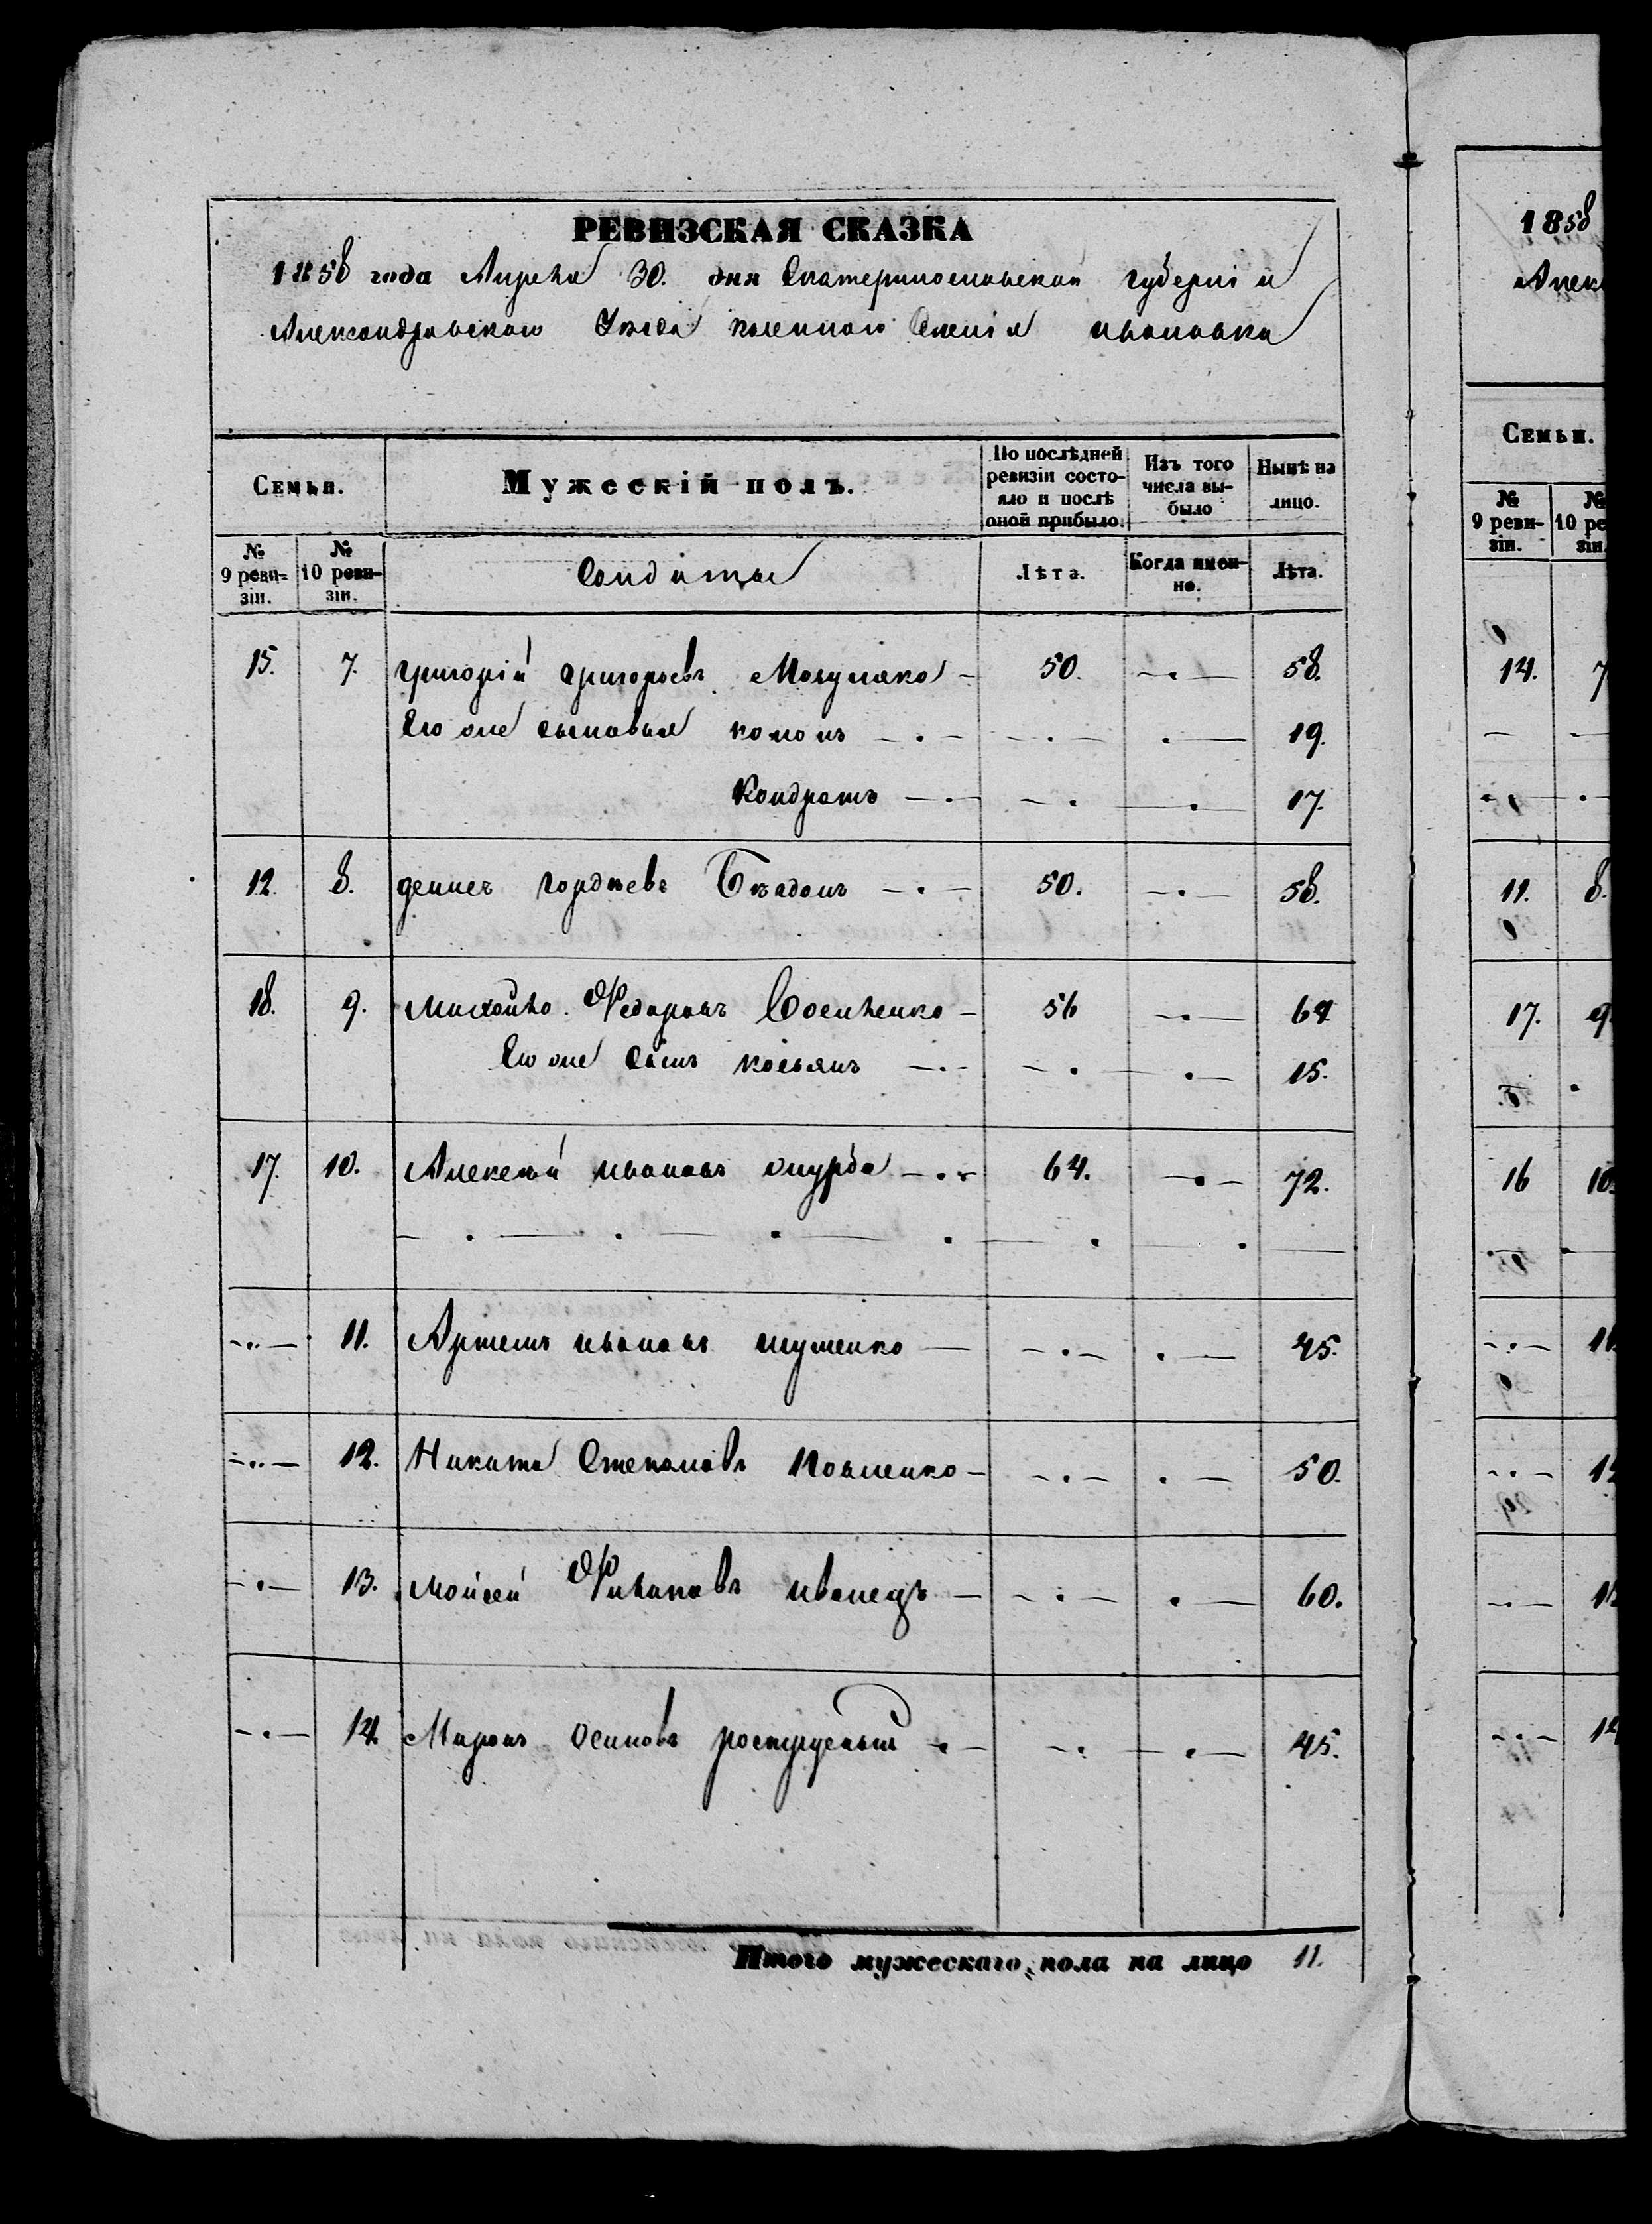 РЕВИЗСКАЯ СКАЗКА
1858 года Апреля 30. дня Екатеринославской губерніи
Александровского Уезда казенного Селенія Ивановка
Семьи.
Мужескій полъ.
По послѣдней ревизіи состояло и послѣ оной прибыло.
Изъ того числа выбыло
Нынѣ на лицо.
№ 9 ревизіи.
№ 10 ревизіи.
Солдаты
Лѣта.
Когда именно.
Лѣта.
15. 7. Григорій Григорьевъ — 50. — 58.
Его же сыновья — — 19.
Кондратъ — — — 17.
12. 8. Денисъ Гордѣевъ — 50. — 58.
18. 9. Михайло Федоровъ — 56 — 64
Его же Сынъ Косьянъ — — — 15.
17. 10. Алексѣй Ивановъ — 64. — 72.
— 11. Артемъ Ивановъ — — — 45.
— 12. Никита Степановъ — — — 50.
— 13. Мойсей Филиповъ Иванецъ — — — 60.
— 14. Миронъ Осиповъ — — — 45.
Итого мужескаго пола на лицо 11.
1858
Алек
Семьи.
№ 9 ревизіи.
№ 10 ре
зіи
14. 7
11. 8.
17. 9.
16 10.
— 11
— 12
— 13
— 14